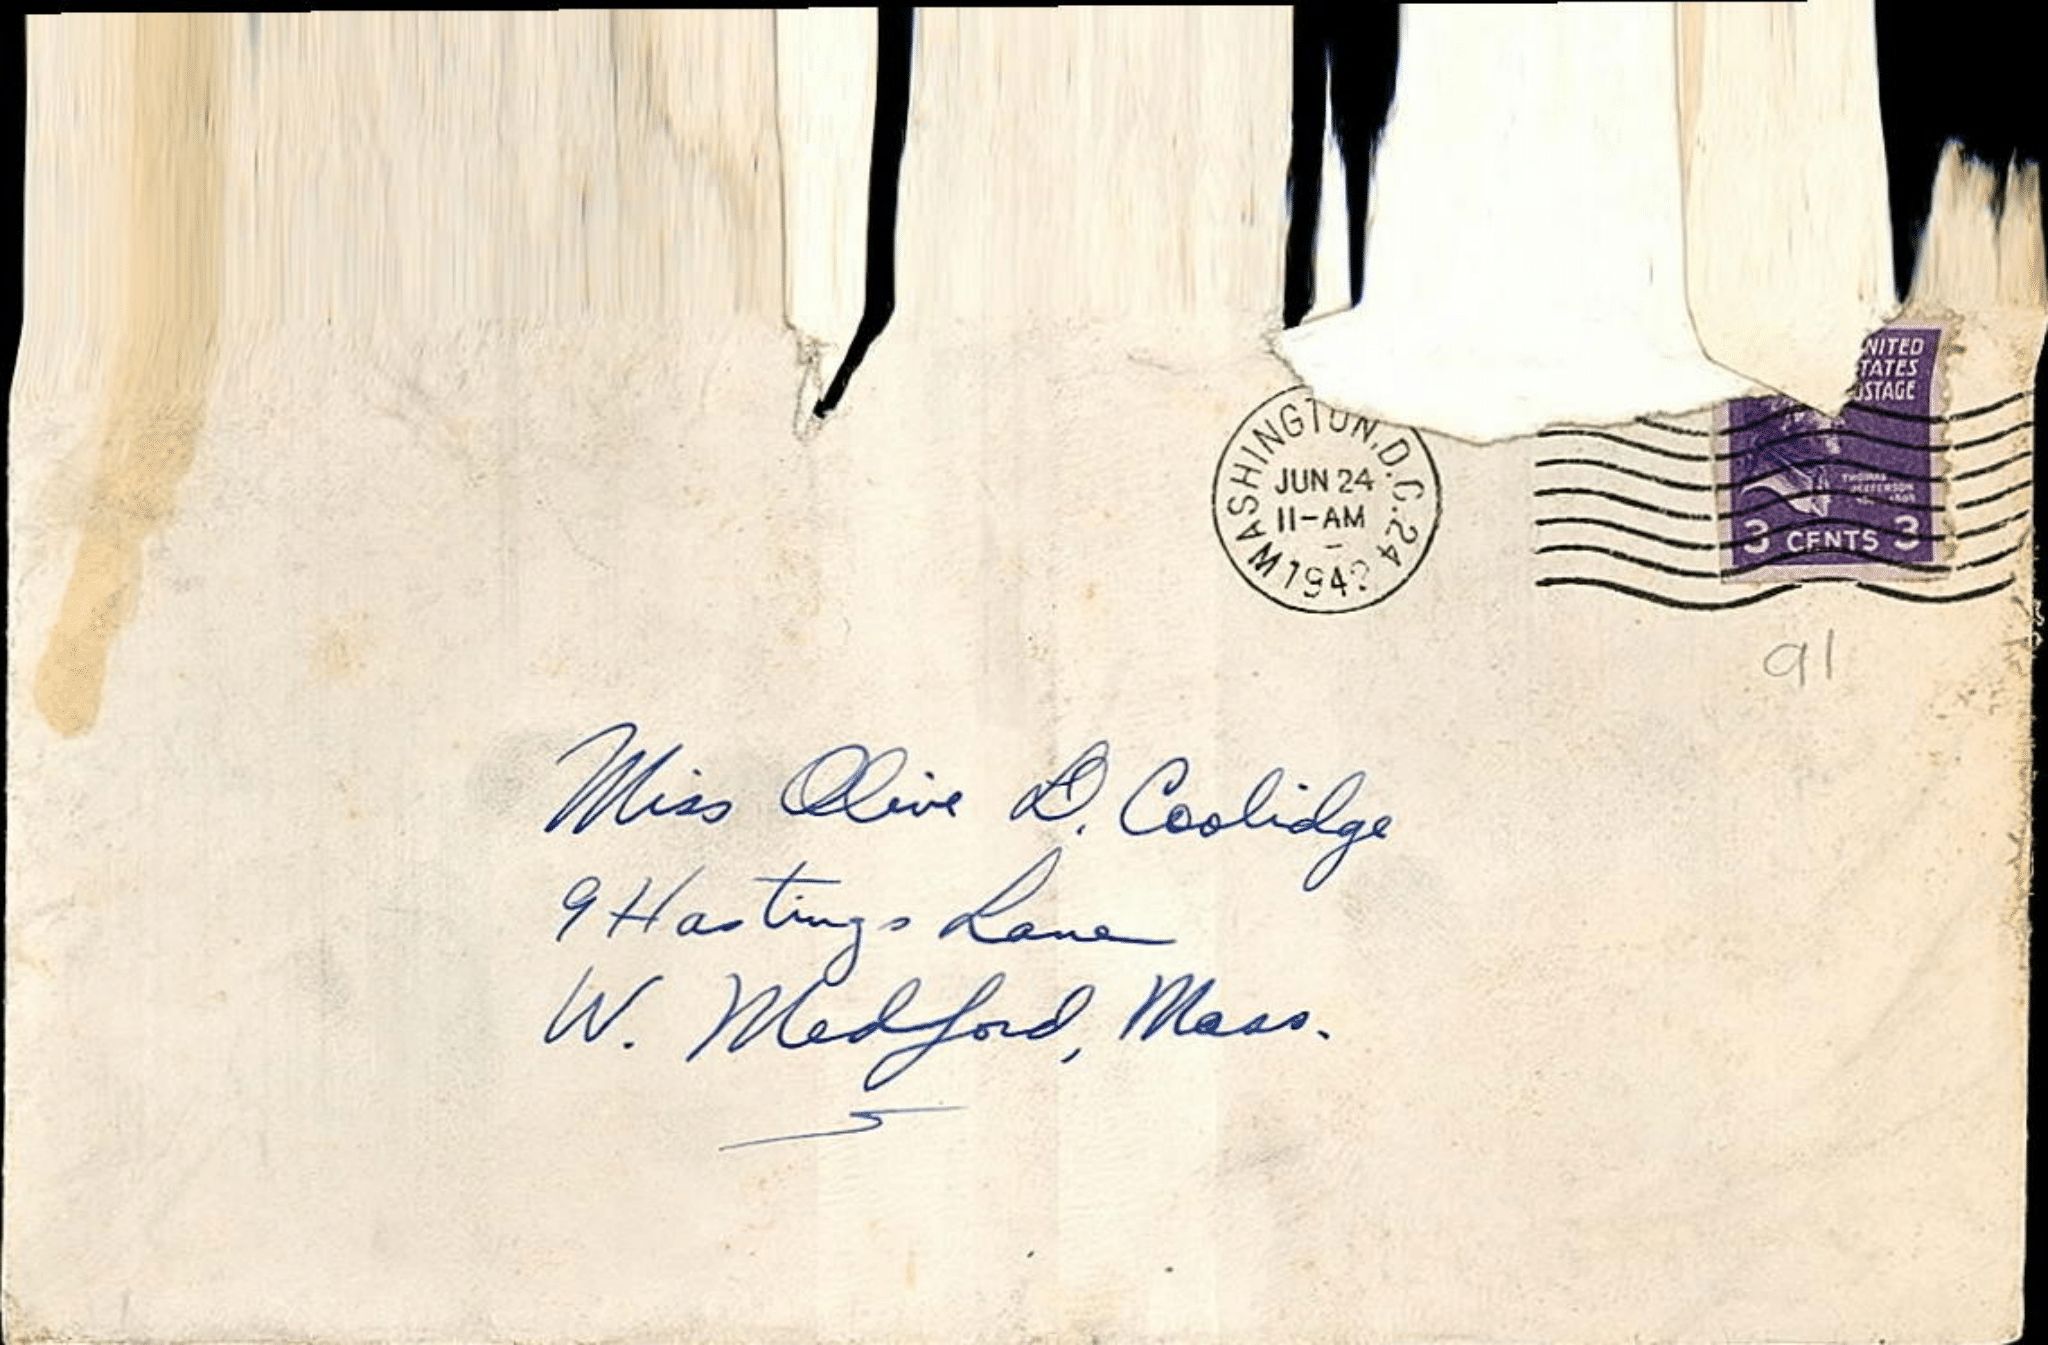 NITED
TATES
STAGE
WASHINGTON, D.C. 24
JUN 24
11-AM
THOMAS
JEFFERSON
3 CENTS 3
91
Miss Olive D. Coolidge
9 Hastings Lane
W. Medford, Mass.
5